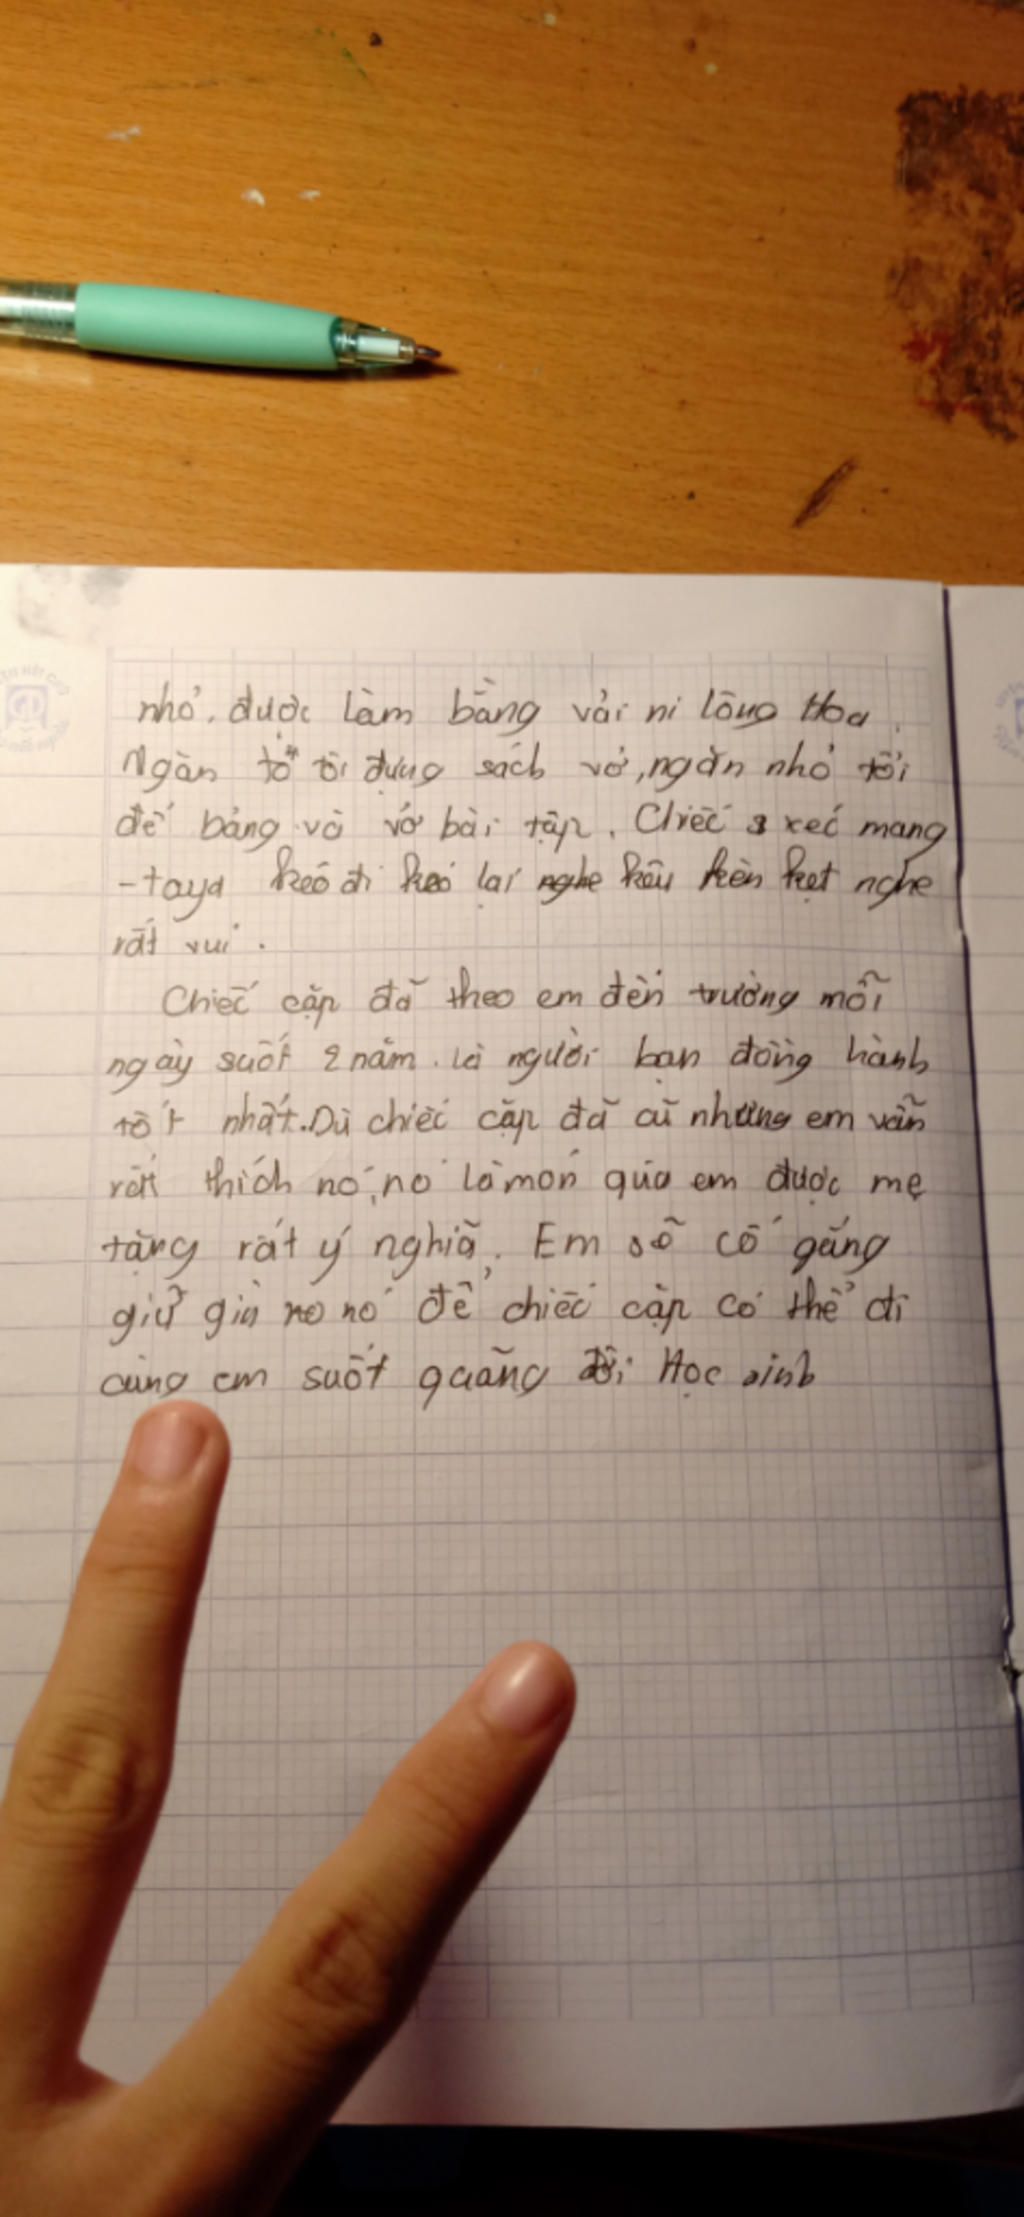 nhỏ. được làm bằng vải ni lông Hoa.
Ngăn to tôi đựng sách vở, ngăn nhỏ tôi
để bảng và vở bài tập. Chiếc xéc mang
-taya kéo đi kéo lại nghe kêu kèn kẹt nghe
rất vui.
Chiếc cặp đã theo em đến trường mỗi
ngày suốt 2 năm. là người bạn đồng hành
tốt nhất. Dù chiếc cặp đã cũ nhưng em vẫn
rất thích nó, nó là món qùa em được mẹ
tặng rất ý nghiã. Em sẽ cố gắng
giữ gìn nó để chiếc cặp có thể đi
cùng em suốt quãng đời Học sinh